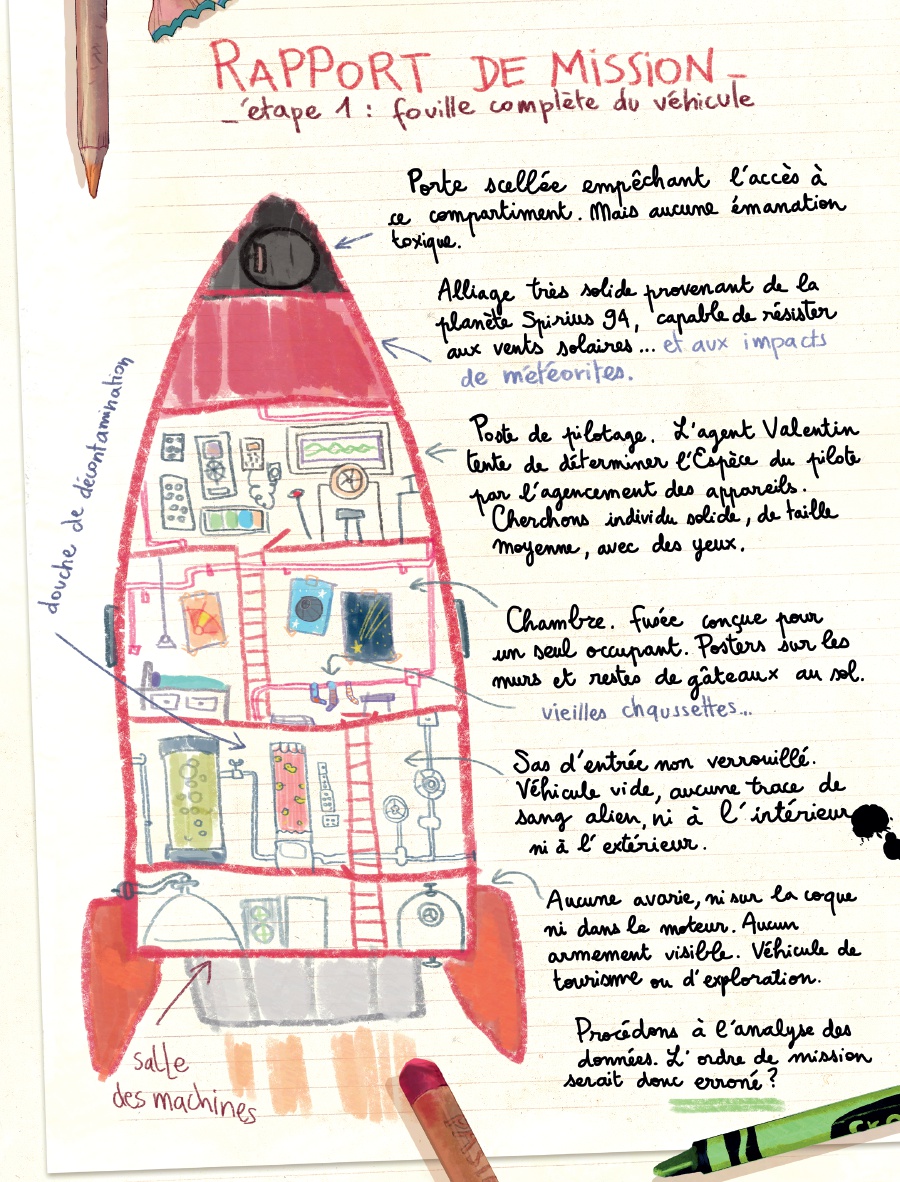 RAPPORT DE MISSION_
_étape 1 : fouille complète du véhicule
Porte scellée empêchant l'accès à
ce compartiment. Mais aucune émanation
toxique.
Alliage très solide provenant de la
planète Spirius 94, capable de résister
aux vents solaires... et aux impacts
de météorites.
douche de décontamination
Poste de pilotage. L'agent Valentin
tente de déterminer l'Espèce du pilote
par l'agencement des appareils.
Cherchons individu solide, de taille
moyenne, avec des yeux.
Chambre. Fusée conçue pour
un seul occupant. Posters sur les
murs et restes de gâteaux au sol.
vieilles chaussettes...
Sas d'entrée non verrouillé.
Véhicule vide, aucune trace de
sang alien, ni à l'intérieur
ni à l'extérieur.
Aucune avarie, ni sur la coque
ni dans le moteur. Aucun
armement visible. Véhicule de
tourisme ou d'exploration.
Procédons à l'analyse des
données. L'ordre de mission
serait donc erroné ?
salle
des machines